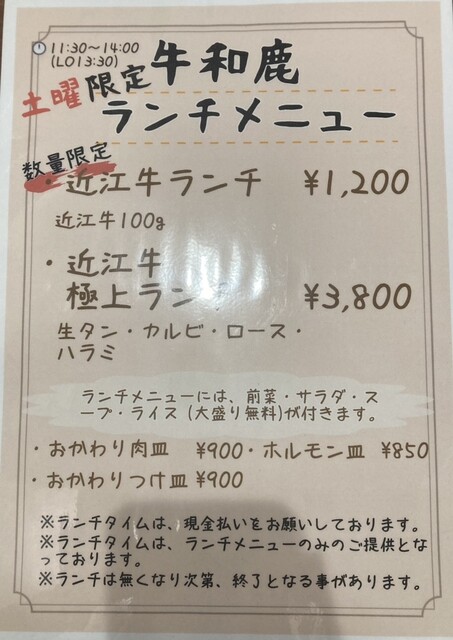 11:30～14:00
(LO13:30)
土曜限定牛和鹿
ランチメニュー
数量限定
・近江牛ランチ ¥1,200
近江牛100g
・近江牛
極上ランチ ¥3,800
生タン・カルビ・ロース・
ハラミ
ランチメニューには、前菜・サラダ・ス
ープ・ライス (大盛り無料)が付きます。
・おかわり肉皿 ¥900・ホルモン皿 ¥850
・おかわりつけ皿 ¥900
※ランチタイムは、現金払いをお願いしております。
※ランチタイムは、ランチメニューのみのご提供とな
っております。
※ランチは無くなり次第、終了となる事があります。